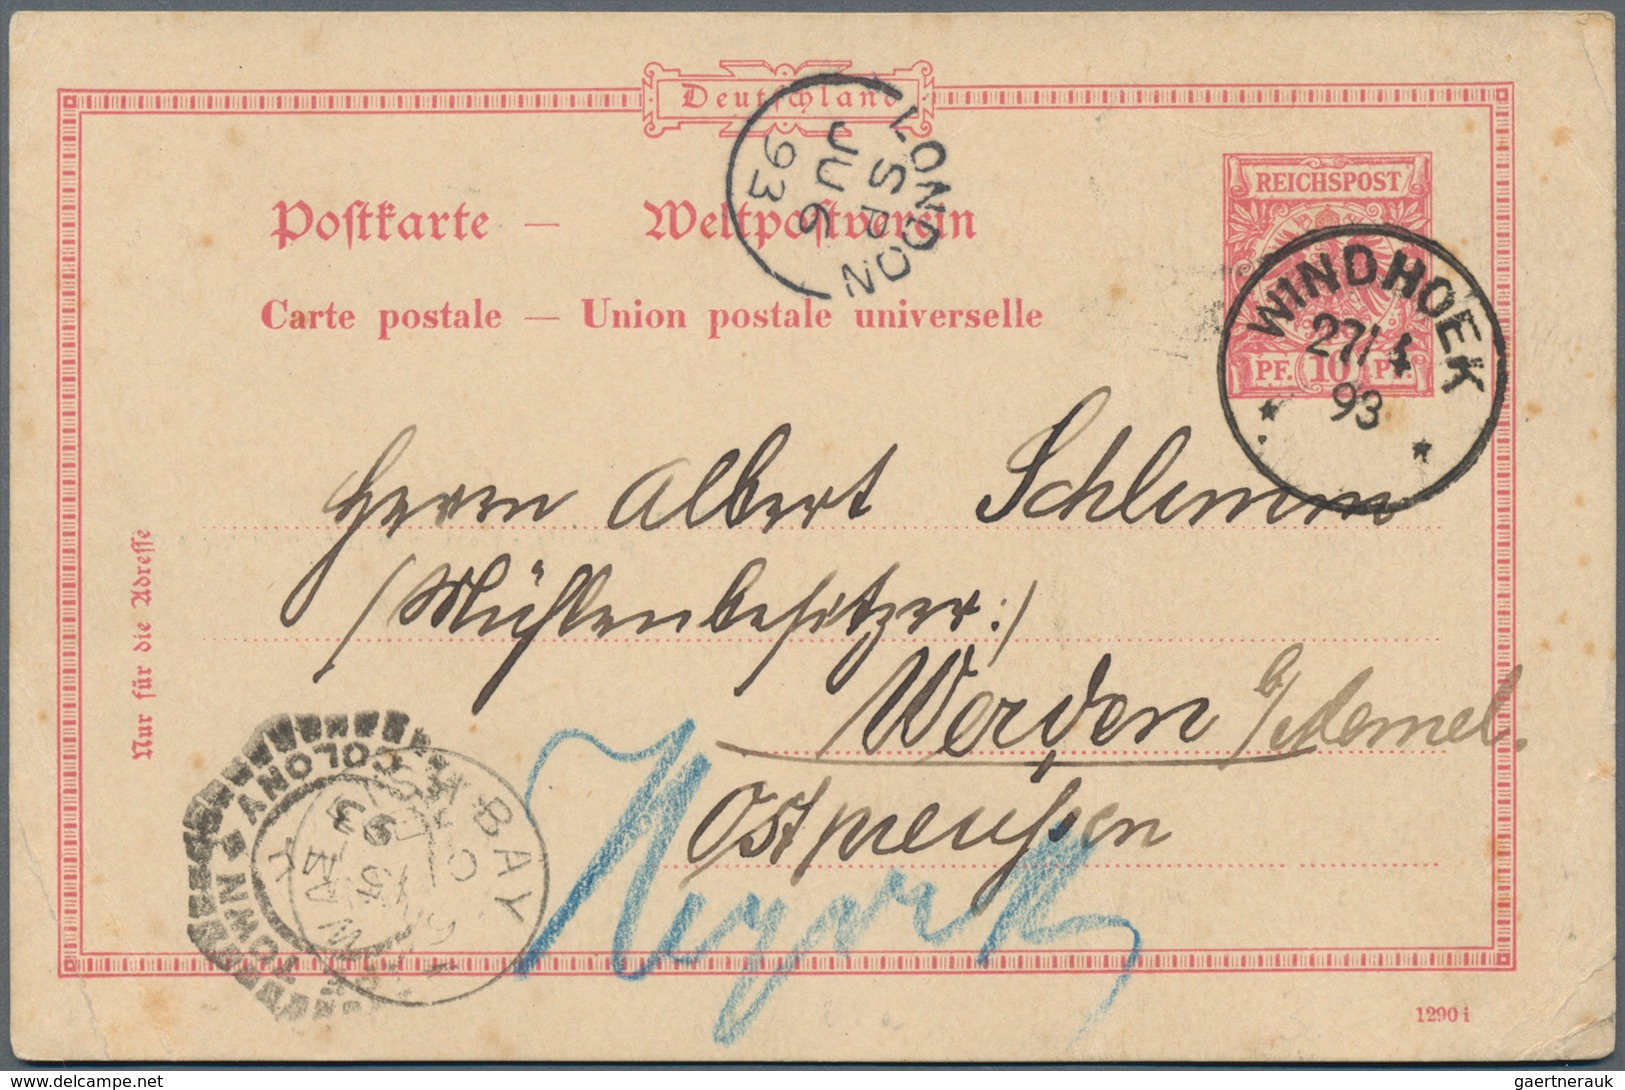 Deutschland
Postkarte — Weltpostverein
Carte postale — Union postale universelle
REICHSPOST
PF. 10 PF.
WINDHOEK
27/4
93
LONDON
S P
JU 6
93
Nur für die Adresse
Herrn Albert Schlimm
/:Mühlenbesitzer:/
Werden b/Memel.
Ostpreußen
TOWN COLONY
BAY
93
1290 i
delcampe.net
gaertnerauk